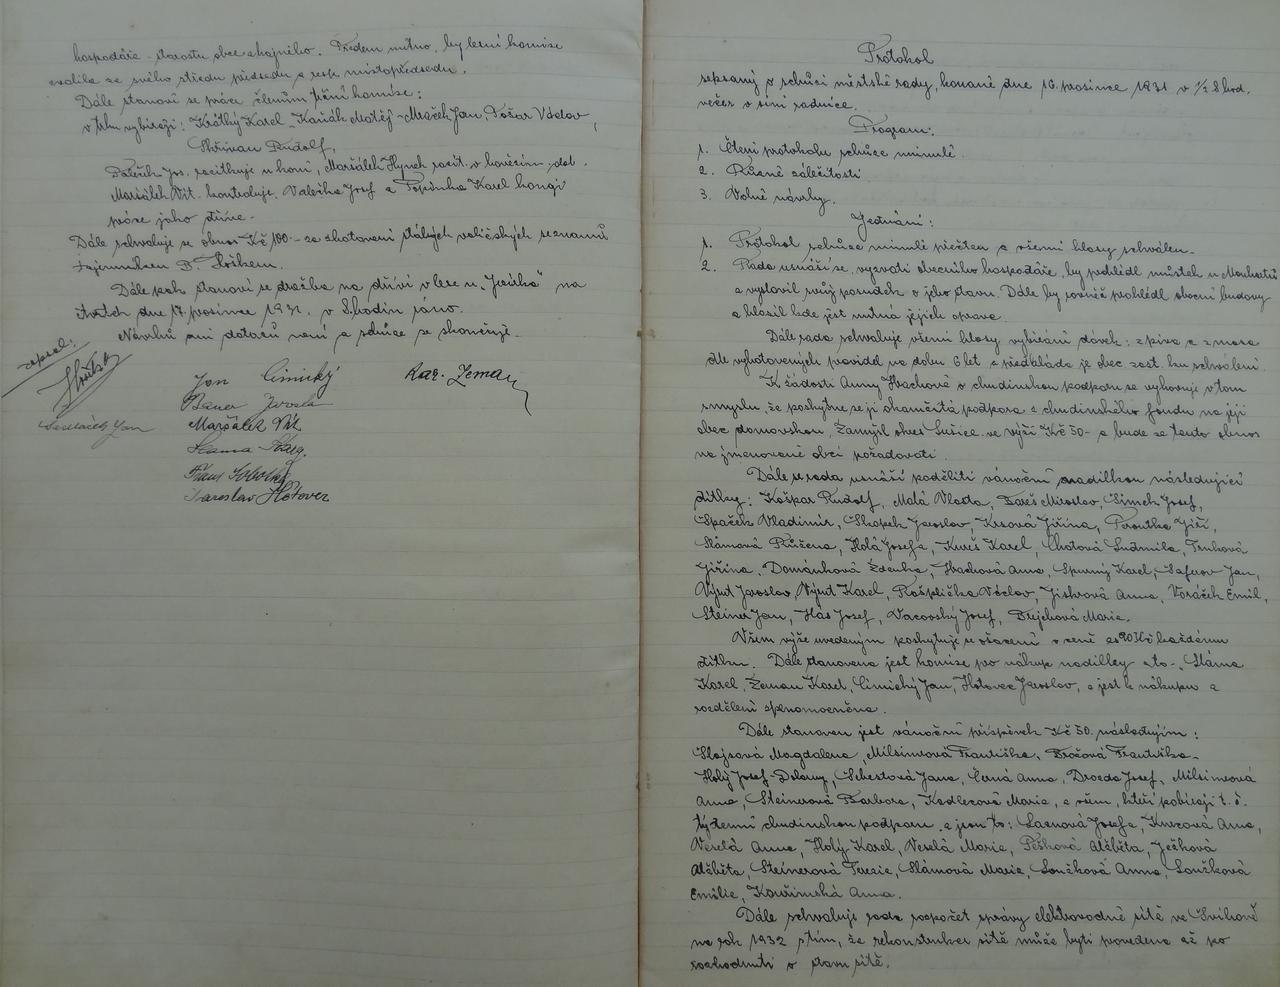 hospodáře - starostu obce a hajného. Předem nutno, by lesní komise
zvolila ze svého středu předsedu a resp. místopředsedu.
Dále stanoví se práce členům lesní komise:
v trhu vybírají: Krátký Karel - Kaňák Matěj - Maček Jan, Požar Václav,
Skřivan Rudolf,
Jos. razítkuje u koní, Maršálek Hynek razít. v hovězím odd.
Maršálek Vít. kontroluje. Valečka Josef a Karel konají
práce jako dříve.
Dále schvaluje se obnos Kč 100.- za zhotovení stálých voličských seznamů
tajemníkem P. Hoškem.
Dále pak stanoví se dražba na dříví v lese u „ " na
čtvrtek dne 17. prosince 1931. v 8. hodin ráno.
Návrhů ani dotazů není a schůze se skončuje.
zapsal:
Jan Cimický Kar. Zeman
Bauer Jarosla
Sedláček Jan Maršálek Vít.
Sláma
Frant. Sobotka
Jaroslav Hotovec
Protokol
sepsaný o schůzi městské rady, konané dne 16. prosince 1931 v ½ 8 hod.
večer v síni radnice.
Program:
1. Čtení protokolu schůze minulé.
2. Různé záležitosti
3. Volné návrhy.
Jednání:
1. Protokol schůze minulé přečten a všemi hlasy schválen.
2. Rada usnáší se, vyzvati obecního hospodáře, by prohlédl můstek u
a vyslovil svůj posudek o jeho stavu. Dále by rovněž prohlédl obecní budovy
a hlásil kde jest nutná jejich oprava.
Dále rada schvaluje všemi hlasy vybírání dávek: z piva a z masa
dle vyhotovených pravidel na dobu 6 let a předkládá je obec. zast. ku schválení.
K žádosti Anny Hrachové o chudinskou podporu se vyhovuje v tom
smyslu, že poskytne se jí okamžitá podpora z chudinského fondu na její
obec domovskou, Zámyšl okres Sušice ve výši Kč 50.- a bude se tento obnos
na jmenované obci požadovati.
Dále se rada usnáší poděliti vánoční nadílkou následující
dítky: Košpar Rudolf, Malá Vlasta, Bareš Miroslav, Šimek Josef,
Špaček Vladimír, Skopek Jaroslav, Krsová Jiřina, Peroutka Jiří,
Slámová Růžena, Holá Josefa, Kureš Karel, Chotová Ludmila, Truhová
Jiřina, Domínková Zdenka, Hrachová Anna, Spurný Karel, Šaferov Jan,
Výrut Jaroslav, Výrut Karel, Rosplička Václav, Jiskrová Anna, Voráček Emil,
Steiner Jan, Hás Josef, Vacovský Josef, Brejchová Marie.
Všem výše uvedeným poskytuje se ošacení v ceně za 90 Kč každému
dítku. Dále stanovena jest komise pro nákup nadílky a to - Sláma
Karel, Zeman Karel, Cimický Jan, Hotovec Jaroslav, a jest k nákupu a
rozdělení splnomocněna.
Dále stanoven jest vánoční příspěvek Kč 50. následujícím:
Slojsová Magdalena, Milsimerová Františka, Brožová Františka,
Holý Josef Dolorny, Šebestová Jana, Černá Anna, Drozda Josef, Milsimerová
Anna, Steinerová Barbora, Kadlecová Marie, a všem, kteří pobírají t. č.
týdenní chudinskou podporu a jsou to: Lacnová Josefa, Knezová Anna,
Veselá Anna, Holý Karel, Veselá Marie, Pešková Alžběta, Ježková
Alžběta, Steinerová Terezie, Slámová Marie, Součková Anna, Součková
Emilie, Kouřimská Anna.
Dále schvaluje rada rozpočet správy elektrovodné sítě ve Zvíkově
na rok 1932 s tím, že rekonstrukce sítě může býti provedena až po
rozhodnutí o stavu sítě.